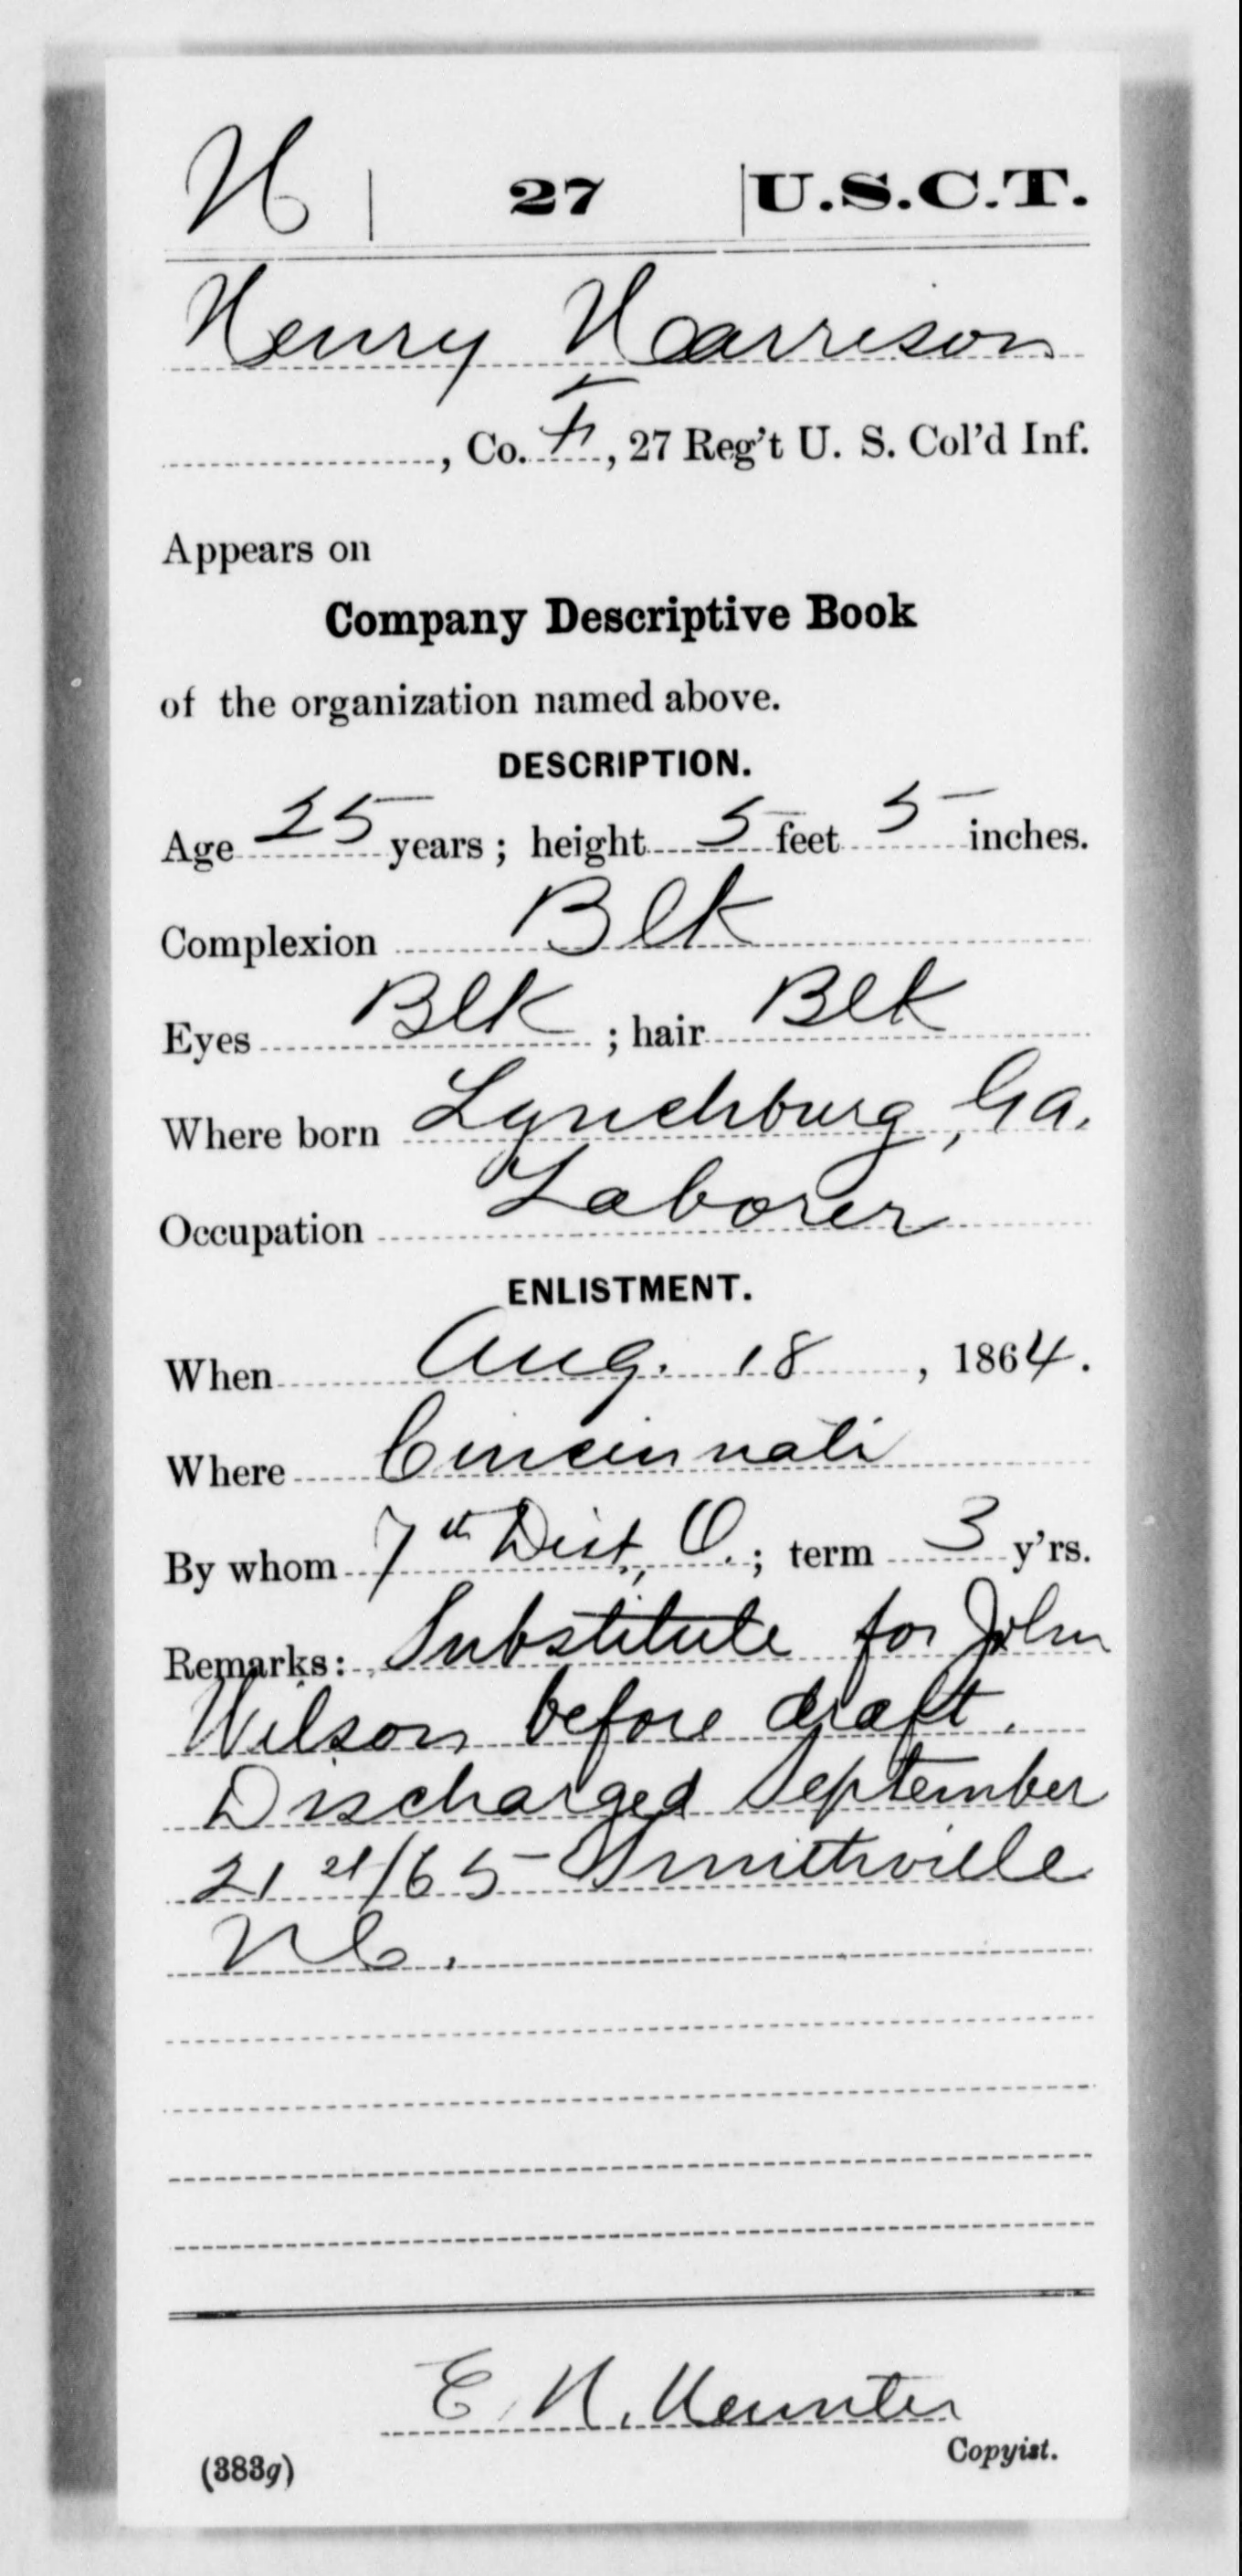 H | 27 | U.S.C.T.
Henry Harrison
, Co. F, 27 Reg't U. S. Col'd Inf.
Appears on
Company Descriptive Book
of the organization named above.
DESCRIPTION.
Age 25 years; height 5 feet 5 inches.
Complexion Blk
Eyes Blk; hair Blk
Where born Lynchburg, Ga.
Occupation Laborer
ENLISTMENT.
When Aug. 18, 1864.
Where Cincinnati
By whom 7th Dist, O.; term 3 y'rs.
Remarks: Substitute for John
Wilson before draft.
Discharged September
21st/65 Smithville
NC.
E. H.
Copyist.
(383g)